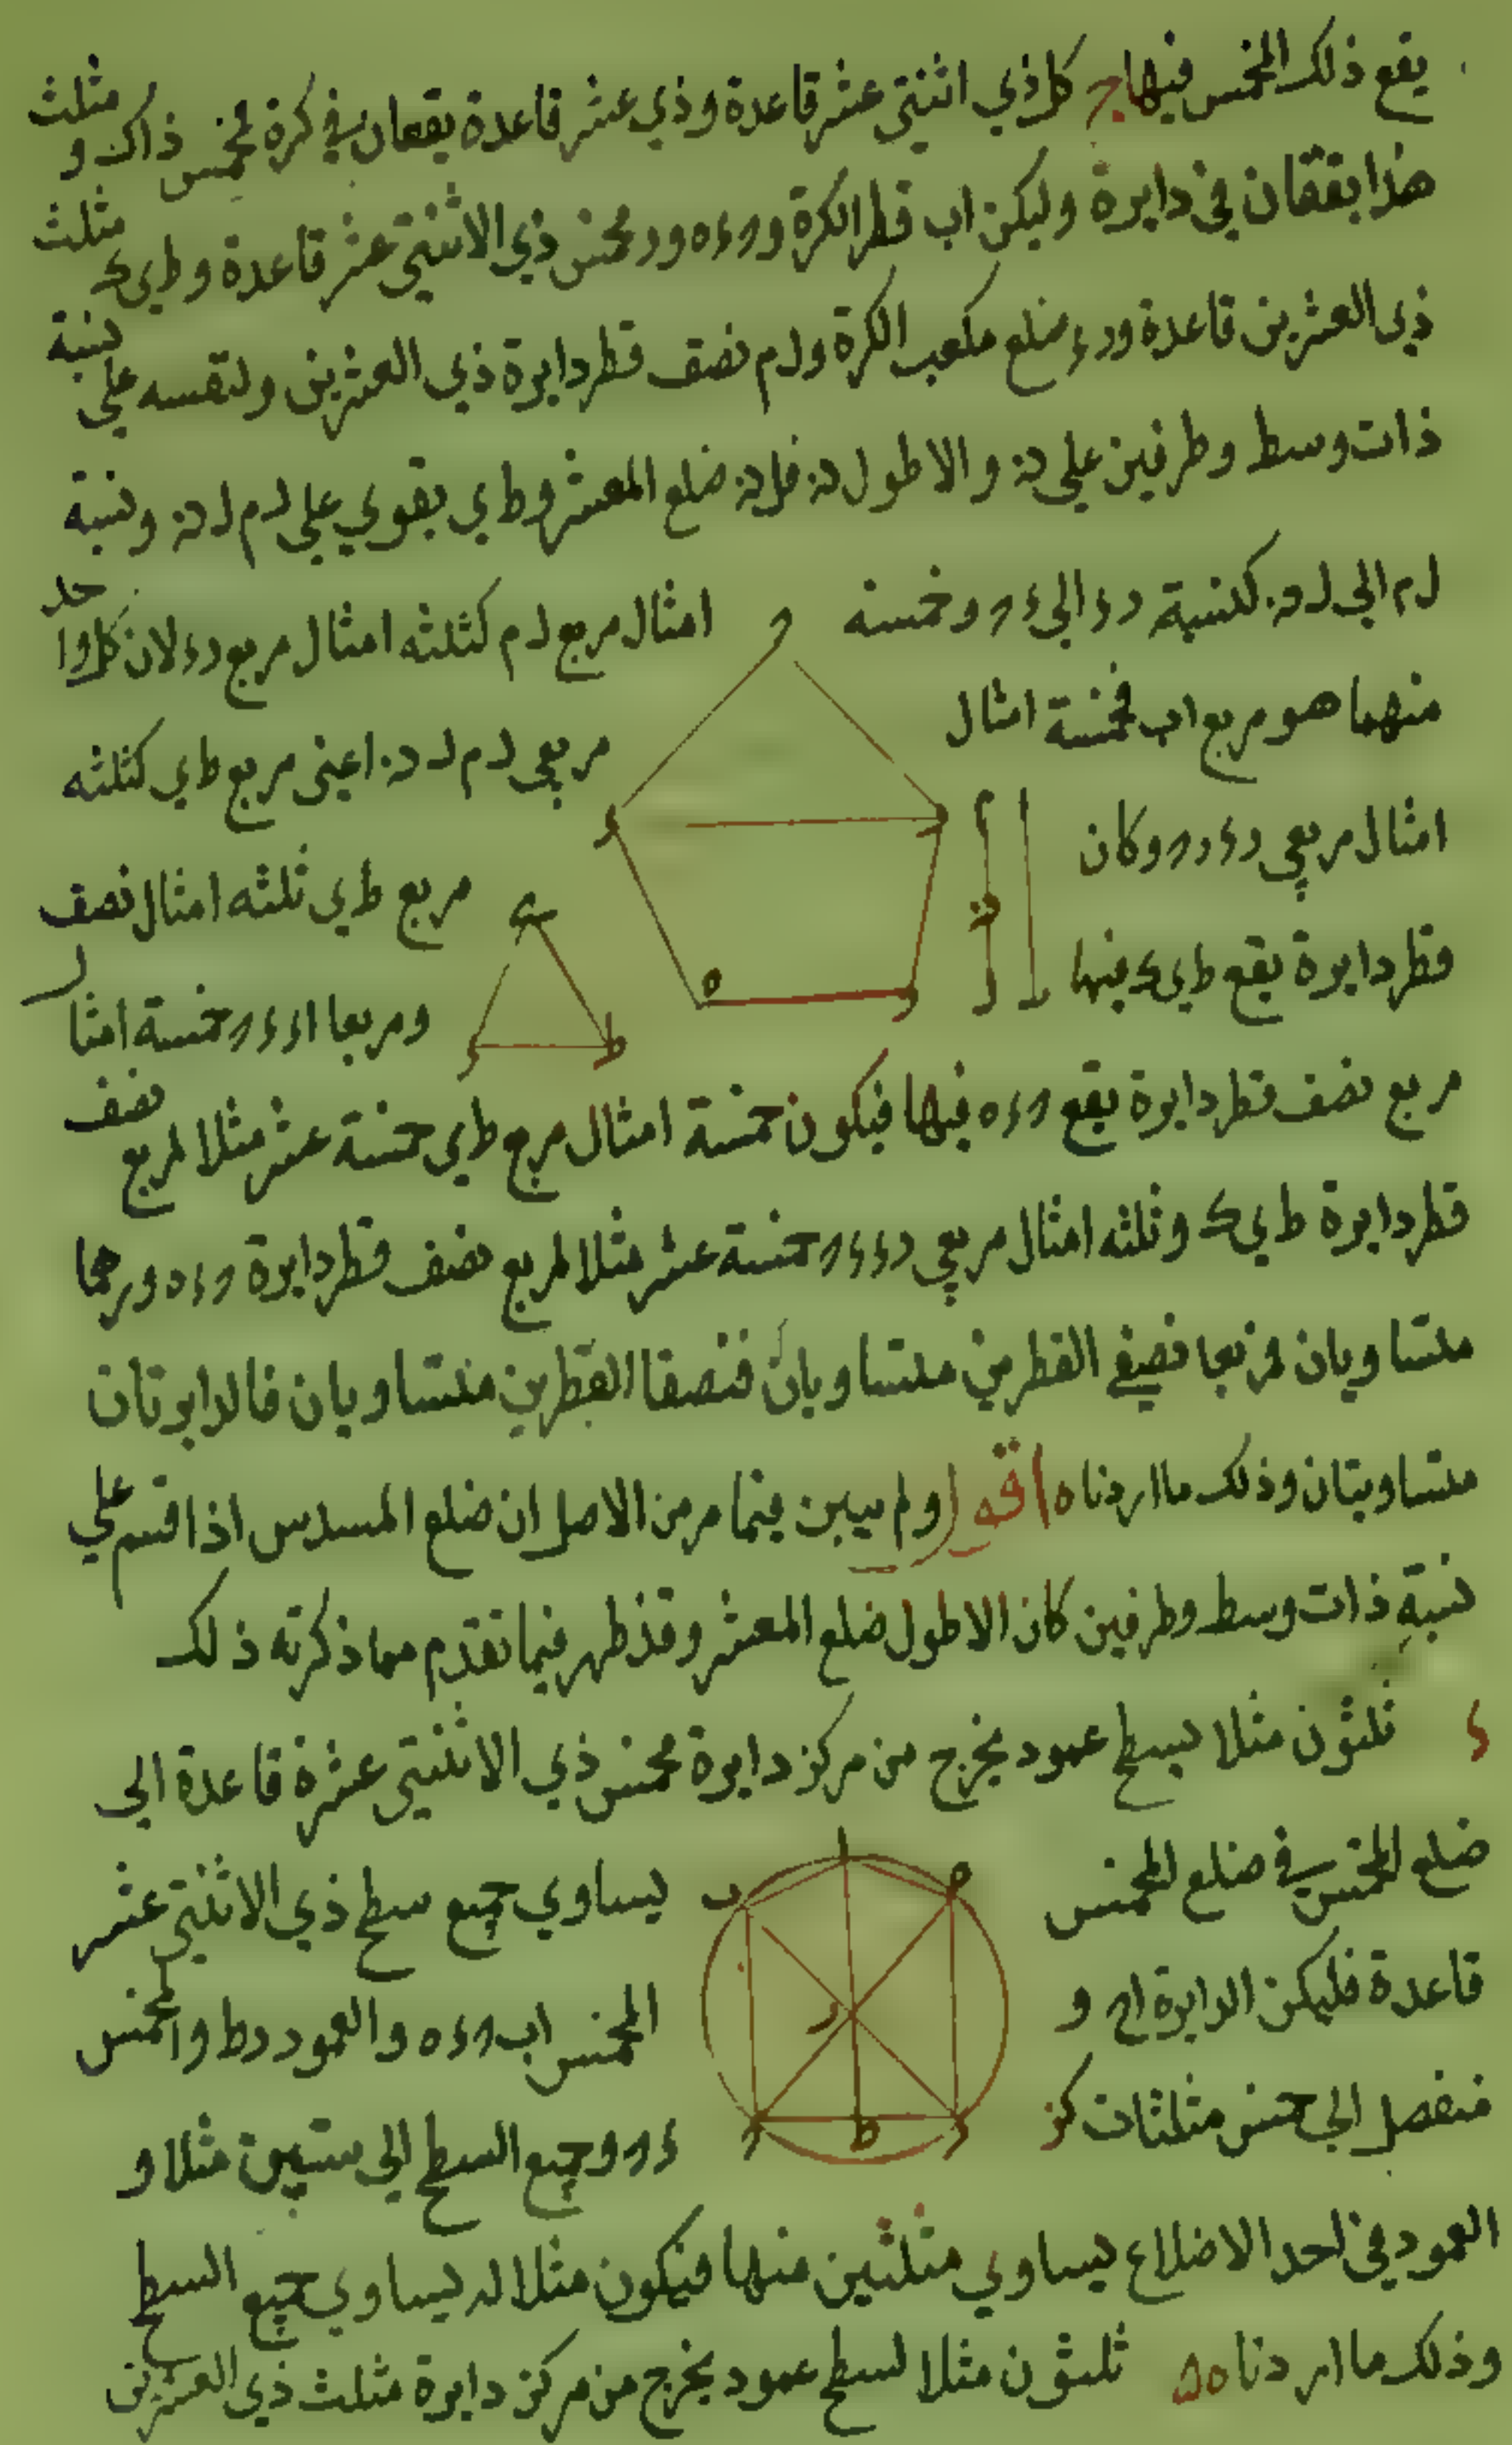 يقع ذلك المخمس فيها ج كل ذي اثنتي عشر قاعدة وذي عشر قاعدة يقعان في كرة فمخمس ذاك و مثلث
هذا يقعان في دايرة وليكن اب قطر الكرة و ح ء ه و ر مخمس ذي الاثنتي عشر قاعدة و ط ي ك مثلث
ذي العشرين قاعدة و ر ء ضلع مكعب الكرة و ل م نصف قطر دايرة ذي العشرين ولنقسه علي نسبة
ذات وسط وطرفين علي ن والاطول ل ن فل ن ضلع المعشر و ط ي يقوي علي ل م ل ن ونسبة
ل م الي ل ن كنسبة ر ء الي ء ح وخمسه امثال مربع ل م كثلثه امثال مربع ر ء لان كل واحد
منهما هو مربع اب فخمسة امثال مربعي ل م ل ن اعني مربع ط ي كثلثه
امثال مربعي ر ء ء ح وكان مربع ط ي ثلثه امثال نصف
قطر دايرة يقع ط ي ك فيها ومربعا ر ء ء ح خمسة امثال
مربع نصف قطر دايرة يقع ح ء ه فيها فيكون خمسة امثال مربع ط ي خمسة عشر مثلا لمربع نصف
قطر دايرة ط ي ك وثلثه امثال مربعي ر ء ء ح خمسة عشر مثلا لمربع نصف قطر دايرة ح ء ه و ر هما
متساويان فربعا نصفي القطرين متساويان فنصفا القطرين متساويان فالدايرتان
متساويتان وذلك ما اردناه اقول ولم يبين فيما مر من الاصل ان ضلع المسدس اذا قسم علي
نسبة ذات وسط وطرفين كان الاطول ضلع المعشر وقد ظهر فيما تقدم مما ذكرته ذلك
ء ثلثون مثلا لسطح عمود يخرج من مركز دايرة مخمس ذي الاثنتي عشرة قاعدة الي
ضلع المخمس في ضلع المخمس يساوي جميع سطح ذي الاثنتي عشر
قاعدة فليكن الدايرة ا ح و المخمس ا ب ح ء ه والعمود ر ط والمخمس
منفصل الي خمس مثلثات كز ء ح وجميع السطح الي ستين مثلا و
العمود في احد الاضلاع يساوي مثلثين منها فيكون مثلا له يساوي جميع السطح
وذلك ما اردناه ه ثلثون مثلا لسطح عمود يخرج من مركز دايرة مثلث ذي العشرين